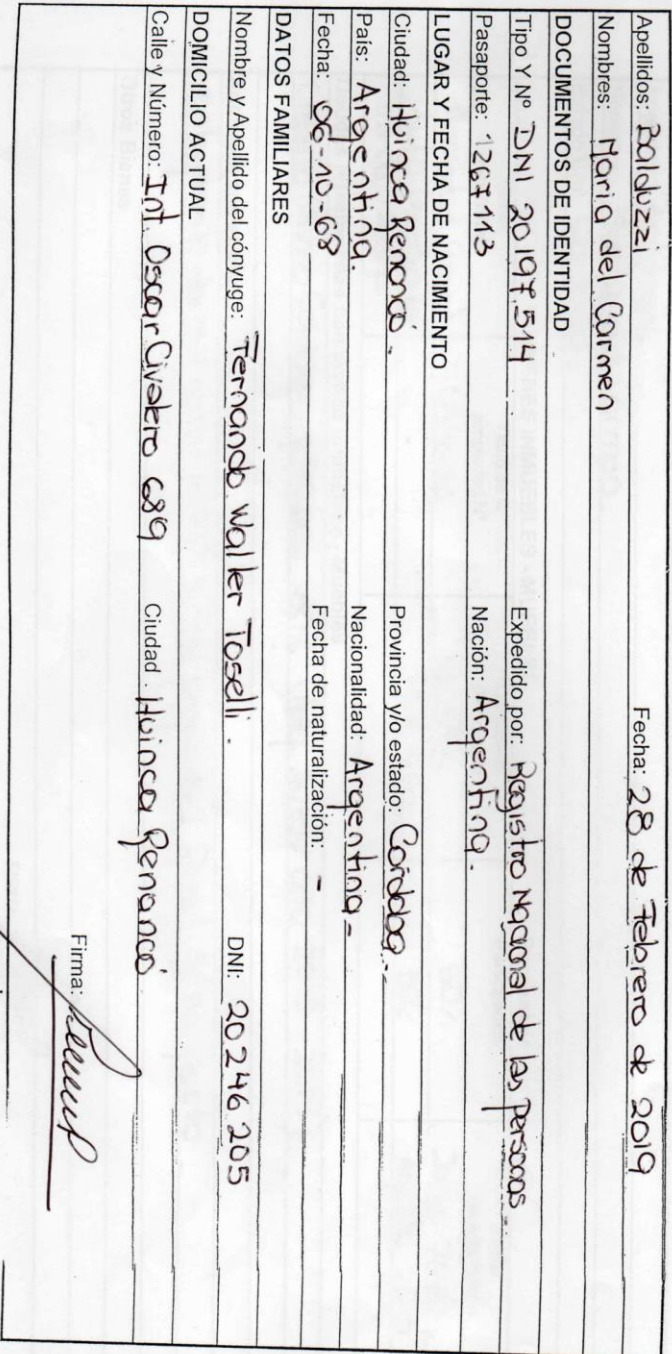 Apellidos: Balduzzi Fecha: 28 de Febrero de 2019
Nombres: Maria del Carmen
DOCUMENTOS DE IDENTIDAD
Tipo Y Nº DNI 20197.514 Expedido por: Registro Nacional de las Personas.-
Pasaporte: 1267113 Nación: Argentina.
LUGAR Y FECHA DE NACIMIENTO
Ciudad: Huinca Renancó. Provincia y/o estado: Cordoba.-
País: Argentina. Nacionalidad: Argentina-
Fecha: 06-10-68 Fecha de naturalización: -
DATOS FAMILIARES
Nombre y Apellido del cónyuge: Fernando Walter Toselli. DNI: 20246.205
DOMICILIO ACTUAL
Calle y Número: Int. Oscar Civalero 689 Ciudad: Huinca Renancó
Firma: